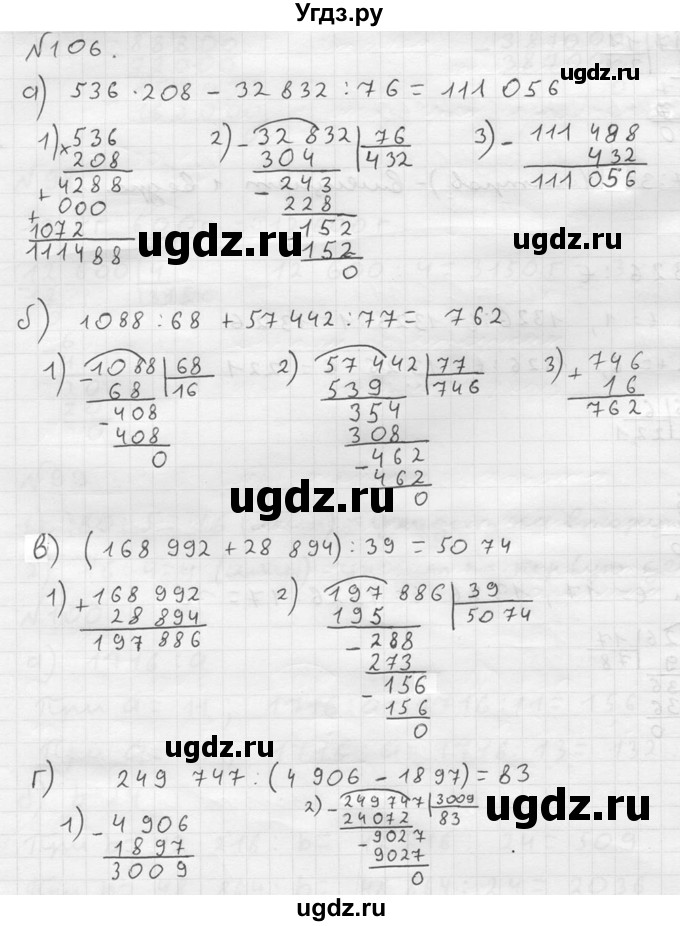 Угдз.ру
№106.
а) 536 · 208 - 32 832 : 76 = 111 056
1) × 536 2) - 32 832 | 76 3) - 111 488
208 304 432 432
+ 4288 - 243 111 056
+ 000 228
1072 152
111488 152
0
ugdz.ru
ugdz.ru
б) 1088 : 68 + 57 442 : 77 = 762
1) - 1088 | 68 2) 57 442 | 77 3) + 746
68 16 539 746 16
- 408 354 762
408 308
0 - 462
462
0
ugdz.ru
в) (168 992 + 28 894) : 39 = 50 74
1) + 168 992 2) 197 886 | 39
28 894 195 50 74
197 886 - 288
273
- 156
156
0
ugdz.ru
г) 249 747 : (4 906 - 1897) = 83
1) - 4 906 2) - 249 747 | 3009
1897 24072 83
3009 - 9027
9027
0
ugdz.ru
ugdz.ru